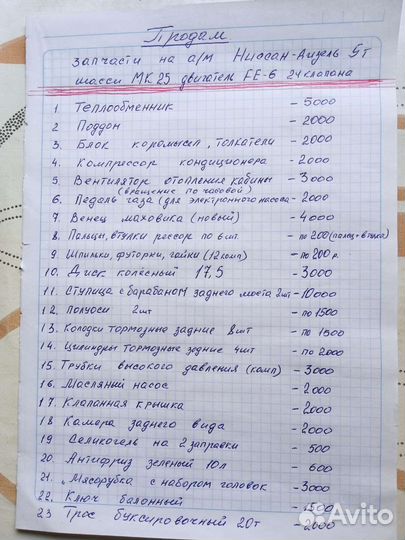 Продам
запчасти на а/м Ниссан-Дизель 5т
шасси МК 25 двигатель FE-6 24 клапана
1. Теплообменник - 5000
2 Поддон - 2000
3. Блок коромысел, толкатели - 2000
4. Компрессор кондиционера - 2000
5. Вентилятор отопления кабины - 3000
(вращение по часовой)
6. Педаль газа (для электронного насоса - 2000
7. Венец маховика (новый) - 4000
8. Пальцы, втулки рессор по 6 шт - по 200 (палец+втулка)
9. Шпильки, футорки, гайки (12 комп) - по 200 р.
10. Диск колёсный 17,5 - 3000
11. Ступица с барабаном заднего моста 2 шт - 10000
12. Полуоси 2 шт - по 1500
13. Колодки тормозные задние 8 шт - по 1500
14. Цилиндры тормозные задние 4 шт - по 2000
15. Трубки высокого давления (комп) - 3000
16. Масляный насос - 2000
17. Клапанная крышка - 2000
18 Камера заднего вида - 2000
19 Селикогель на 2 заправки - 500
20. Антифриз зеленый 10л - 600
21. "Мясорубка с набором головок - 3000
22. Ключ балонный - 1500
23. Трос буксировочный 20т - 2000
Avito